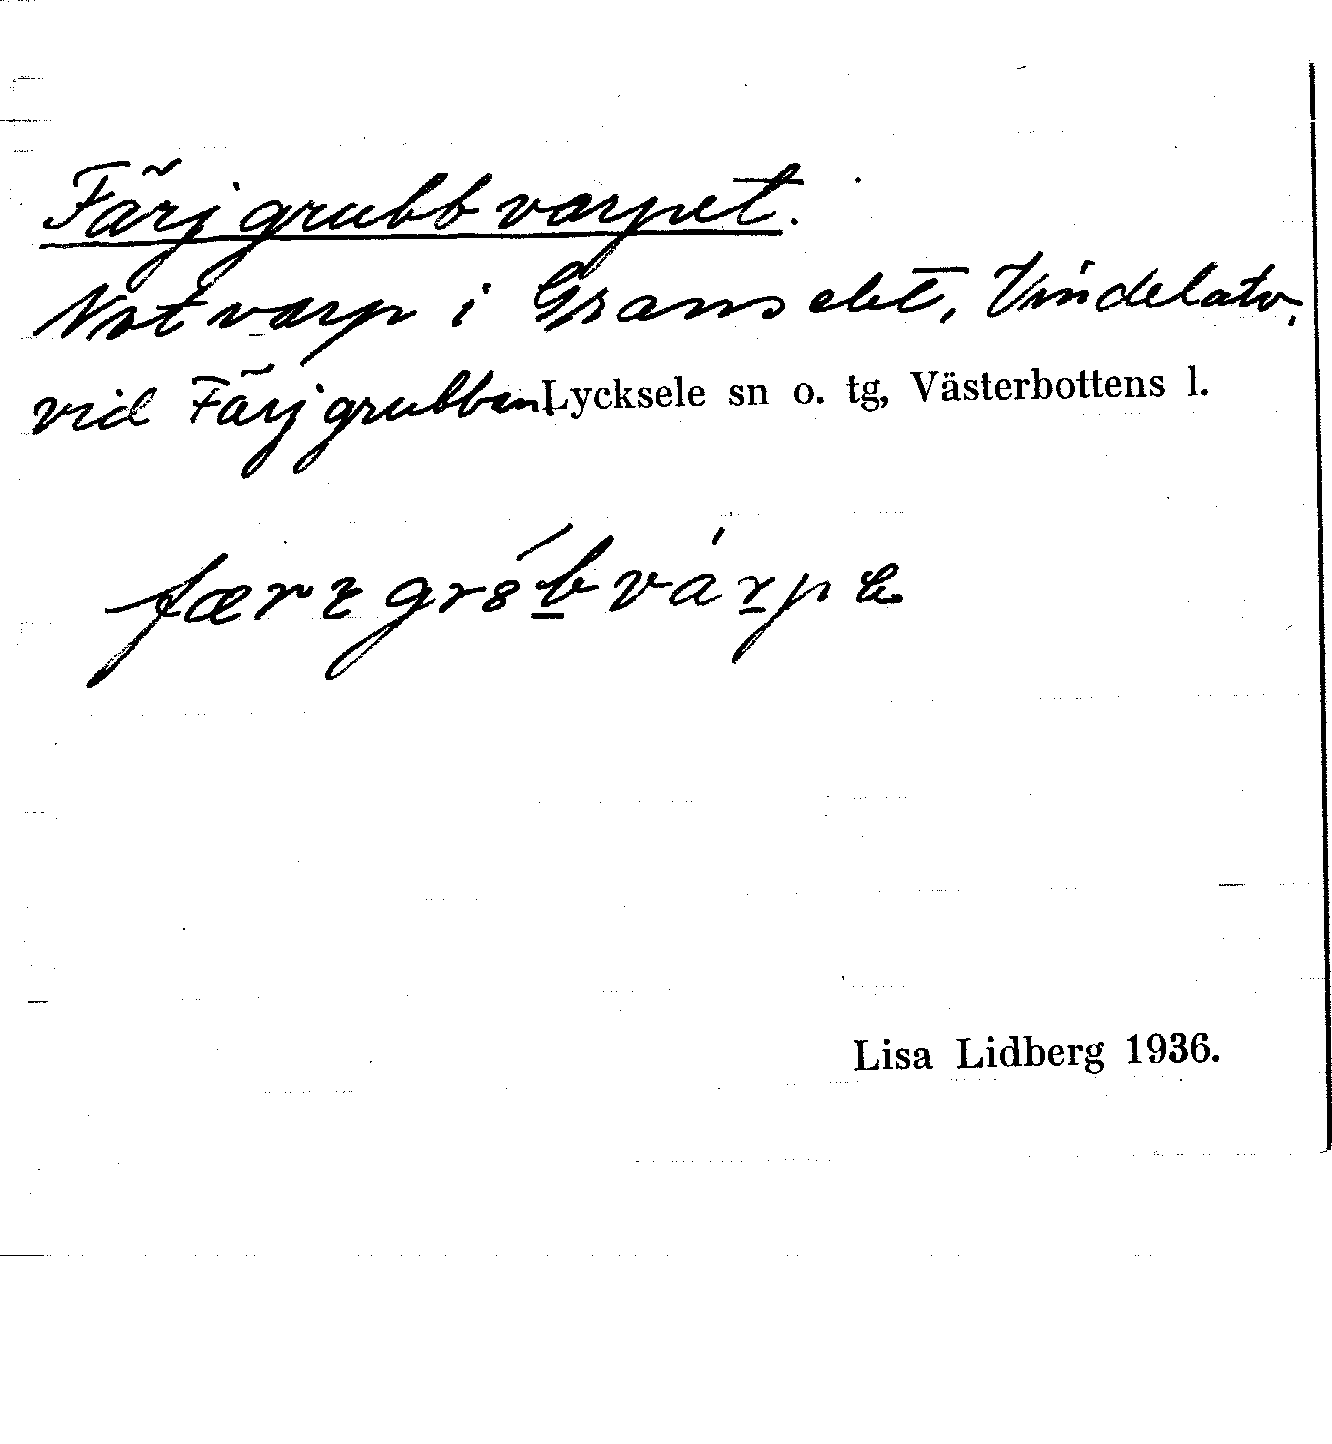 Färjgrubbvarpet.
Notvarp i Granselet, Vindelälv.
vid Färjgrubben Lycksele sn o. tg, Västerbottens l.
Lisa Lidberg 1936.